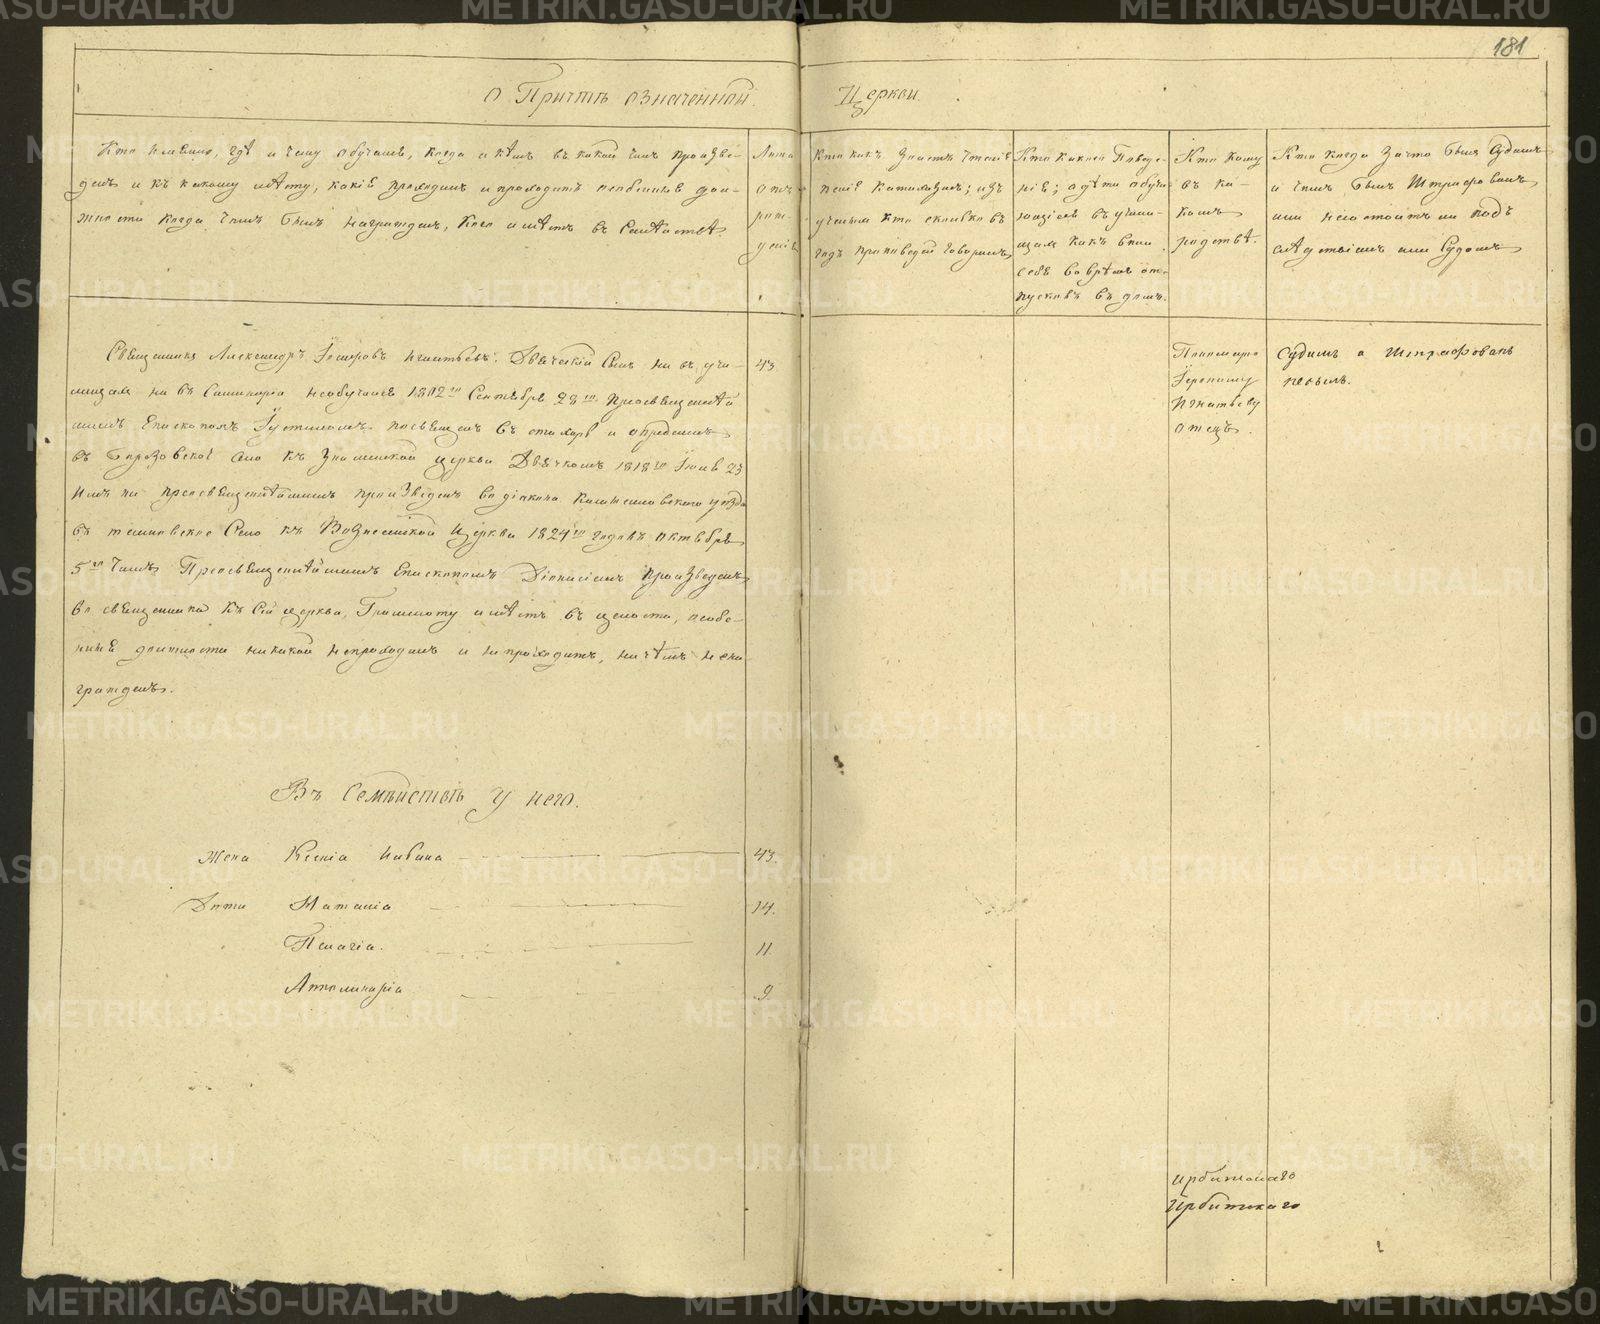 181
о Причтѣ означенной Церкви.
Кто именно, гдѣ и чему обучался, когда и кѣмъ въ какой чинъ произве-
денъ и къ какому мѣсту, какіе проходилъ и проходитъ особенные дол-
жности когда чѣмъ былъ награжденъ, Кого имѣетъ въ Семействѣ.
Лѣта
отъ
рож-
денія
Кто какъ Знаетъ чтеніе
пеніе катихизисъ; изъ
ученыхъ кто сколько въ
годъ проповедей говорилъ
Кто какого Поведе-
нія; а дѣти обуча-
ющіеся въ учили-
щахъ какъ вели
себя во время от-
пусковъ въ домъ.
Кто кому
въ ка-
комъ
родствѣ.
Кто когда За что былъ Судимъ
и чѣмъ былъ Штрафованъ,
или не состоитъ ли подъ
слѣдствіемъ или Судомъ
Священникъ Александръ Игнатьевъ. Дьяческій Сынъ ни въ учи-
лищахъ ни въ Семинаріи необучался 1802 го Сентября 28 го Преосвященнѣй
шимъ Епископомъ Іустиномъ посвященъ въ стихарь и опредѣленъ
въ Село къ Знаменской церкви Дьячкомъ 1818 го Іюля 23
имъ же преосвященнѣйшимъ произведенъ во діакона Камышловскаго уѣзда
въ Село къ Вознесенской Церкви 1824 го года октября
5 го Числа Преосвященнѣйшимъ Епископомъ Діонисіемъ произведенъ
во священника къ Сей церкви, Грамоту имѣетъ въ целости, особе-
нные должности никакой непроходилъ и непроходитъ, ничѣмъ нена-
гражденъ.
43
Пономарю
Іерониму
Игнатьеву
отецъ.
Судимъ и Штрафованъ
небылъ.
Въ Семѣйствѣ у него.
Жена Ксенія Иванова 43.
Дѣти Наталія 14.
Пелагія. 11
Апполинарія 9
Ирбитскаго
Ирбитскаго
METRIKI.GASO-URAL.RU